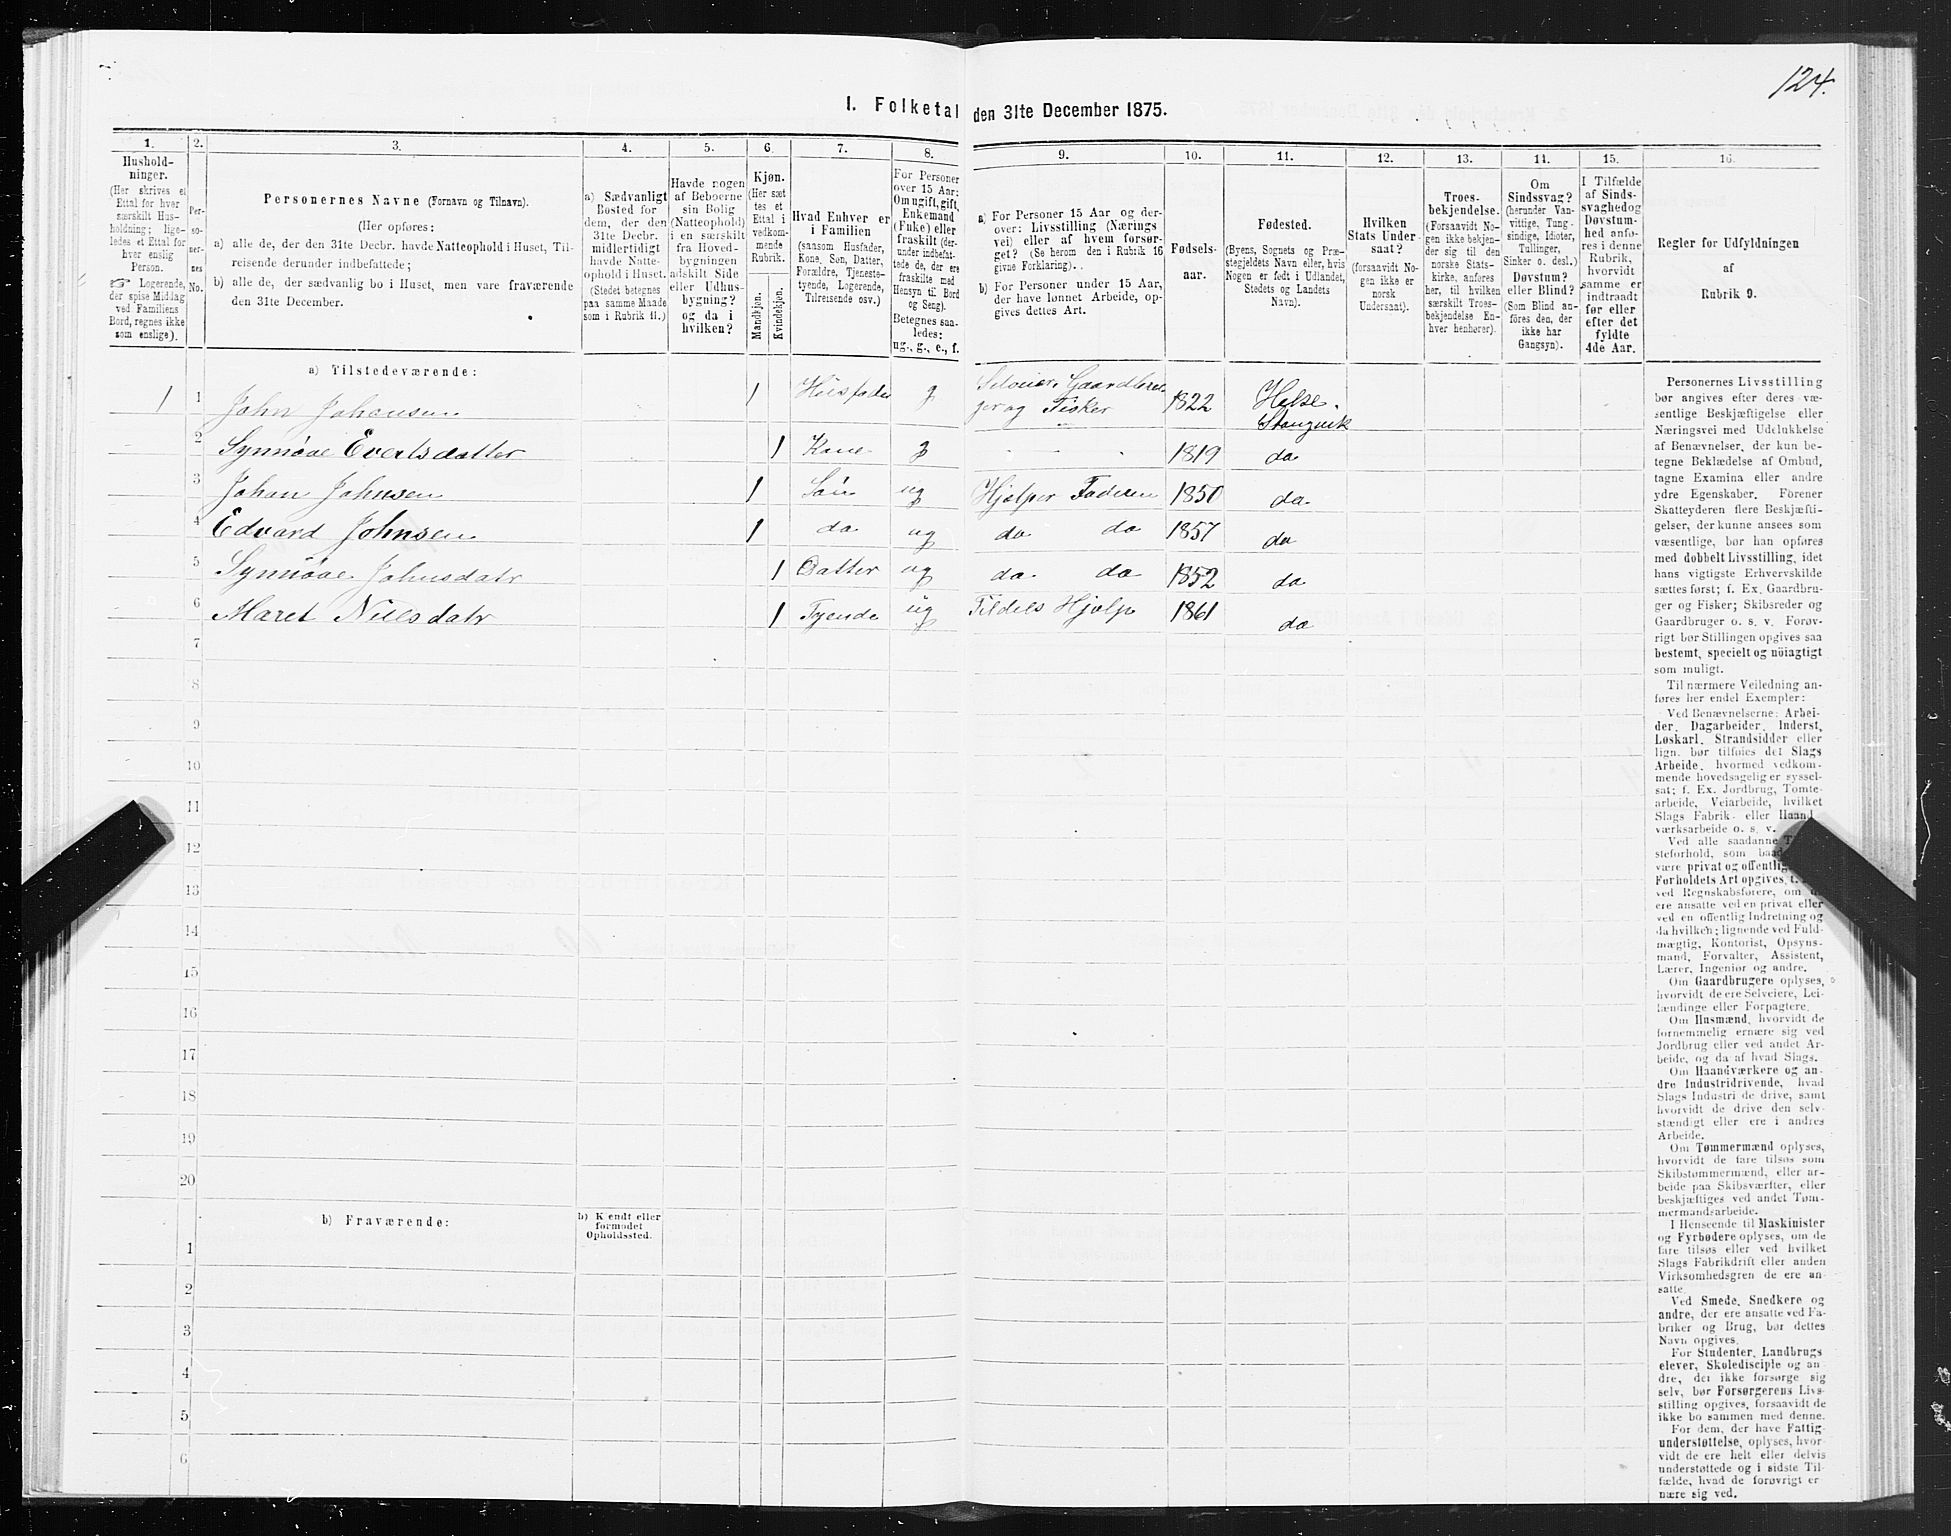 124.
1. Folketal den 31te December 1875.
1. 2. 3. 4. 5. 6. 7. 8. 9. 10. 11. 12. 13. 14. 15. 16.
Hushold-
ninger.
(Her skrives et
Ettal for hver
særskilt Hus-
holdning; lige-
ledes et Ettal for
hver enslig
Person.
☞ Logerende,
der spise Middag
ved Familiens
Bord, regnes ikke
som enslige).
Per-
so-
ner-
nes
No.
Personernes Navne (Fornavn og Tilnavn).
(Her opføres:
a) alle de, der den 31te Decbr. havde Natteophold i Huset, Til-
reisende derunder indbefattede;
b) alle de, der sædvanlig bo i Huset, men vare fraværende
den 31te December.
a) Sædvanligt
Bosted for
dem, der den
31te Decbr.
midlertidigt
havde Natte-
ophold i Huset.
(Stedet betegnes
paa samme Maade
som i Rubrik 11.)
Havde nogen
af Beboerne
sin Bolig
(Natteophold)
i en særskilt
fra Hoved-
bygningen
adskilt Side
eller Udhus-
bygning?
og da i
hvilken?
Kjøn.
(Her sæt
tes et
Ettal i
vedkom-
mende
Rubrik.
Mandkjøn.
Kvindekjøn.
Hvad Enhver er
i Familien
(saasom Husfader,
Kone, Søn, Datter,
Forældre, Tjeneste-
tyende, Logerende,
Tilreisende osv.)
For Personer
over 15 Aar:
Om ugift, gift,
Enkemand
(Enke) eller
fraskilt (der-
under indbefat-
tede de, der ere
fraskilte med
Hensyn til Bord
og Seng).
Betegnes saa-
ledes:
ug., g., e., f.
a) For Personer 15 Aar og der-
over: Livsstilling (Nærings
vei) eller af hvem forsør-
get? (Se herom den i Rubrik 16
givne Forklaring).
b) For Personer under 15 Aar,
der have lønnet Arbeide, op-
gives dettes Art.
Fødsels-
aar.
Fødested.
(Byens, Sognets og Præ-
stegjeldets Navn eller, hvis
Nogen er født i Udlandet,
Stedets og Landets
Navn).
Hvilken
Stats Under
saat?
(forsaavidt No-
gen ikke er
norsk
Undersaat).
Troes-
bekjendelse.
(Forsaavidt No
gen ikke bekjen-
der sig til den
norske Stats-
kirke, anføres
her, til hvilken
særskilt Troes-
bekjendelse En-
hver henhører).
Om
Sindssvag?
(herunder Van-
vittige, Tung-
sindige, Idioter,
Tullinger,
Sinker o. desl.)
Døvstum?
eller Blind?
(Som Blind an-
föres den, der
ikke har
Gangsyn).
I Tilfælde
af Sinds-
svaghed og
Døvstum-
hed anfø-
res i denne
Rubrik,
hvorvidt
samme er
indtraadt
før eller
efter det
fyldte
4de Aar.
Regler for Udfyldningen
af
Rubrik 9.
a) Tilstedeværende:
1 1 John Johansen 1 Husfader g Selveier Gaardbru-
ger og Fisker 1822 Halse.
Stangvik
2 Synnøve Evertsdatter 1 Kone g 1819 do
3 Johan Johnsen 1 Søn ug Hjelper Faderen 1850 do
4 Edvard Johnsen 1 do ug do do 1857 do
5 Synnøve Johnsdatr 1 Datter ug do do 1852 do
6 Maret Nilsdatr 1 Tyende ug Tildels Hjelp 1861 do
7
8
9
10
11
12
13
14
15
16
17
18
19
20
b) Fraværende:
b) Kjendt eller
formodet
Opholdssted.
1
2
3
4
5
6
Personernes Livsstilling
bør angives efter deres væ-
sentlige Beskjæftigelse eller
Næringsvei med Udelukkelse
af Benævnelser, der kun be-
tegne Beklædelse af Ombud,
tagne Examina eller andre
ydre Egenskaber. Forener
Skatteyderen flere Beskjæfti-
gelser, der kunne ansees som
væsentlige, bør han opføres
med dobbelt Livsstilling, idet
hans vigtigste Erhvervskilde
sættes først; f. Ex. Gaardbru-
ger og Fisker; Skibsreder og
Gaardbruger o. s. v. Forøv-
rigt bør Stillingen opgives saa
bestemt, specielt og nöiagtigt
som muligt.
Til nærmere Veiledning an-
føres her endel Exempler:
Ved Benævnelserne: Arbei-
der, Dagarbeider, Inderst,
Løskarl, Strandsidder eller
lign. bør tilføies det Slags
Arbeide, hvormed vedkom-
mende hovedsagelig er syssel-
sat; f. Ex. Jordbrug, Tomte-
arbeide, Veiarbeide, hvilket
Slags Fabrik- eller Haand-
værksarbeide o. s. v.
Ved alle saadanne
steforhold, som
være privat og offentlig,
Forholdets Art opgives,
ved Regnskabsførere, om
ere ansatte ved en privat eller
ved en offentlig Indretning og
da hvilken; lignende ved Fuld-
mægtig, Kontorist, Opsyns-
mand, Forvalter, Assistent,
Lærer, Ingeniør og andre.
Om Gaardbrugere oplyses,
hvorvidt de ere Selveiere, Lei-
lændinge eller Forpagtere.
Om Husmænd, hvorvidt de
fornemmelig ernære sig ved
Jordbrug eller ved andet Ar-
beide, og da af hvad Slags.
Om Haandværkere og an-
dre Industridrivende, hvad
Slags Industri de drive, samt
hvorvidt de drive den selv-
stændigt eller ere i andres
Arbeide.
Om Tømmermænd oplyses,
hvorvidt de fare tilsøs som
Skibstømmermænd, eller ar-
beide paa Skibsværfter, eller
beskjæftiges ved andet Tøm-
mermandsarbeide.
I Henseende til Maskinister
og Fyrbødere oplyses, om de
fare tilsøs eller ved hvilket
Slags Fabrikdrift eller anden
Virksomhedsgren de ere an-
satte.
Ved Smede, Snedkere og
andre, der ere ansatte ved Fa-
briker og Brug, bør dettes
Navn opgives.
For Studenter, Landbrugs
elever, Skoledisciple og an
dre, der ikke forsørge sig
selv, bør Forsørgerens Livs-
stilling opgives, forsaavidt de
ikke bo sammen med denne.
For dem, der have Fattig-
understøttelse, oplyses, hvor-
vidt de ere helt eller delvis
understøttede og i sidste Til-
fælde, hvad de forøvrigt er
nære sig ved.